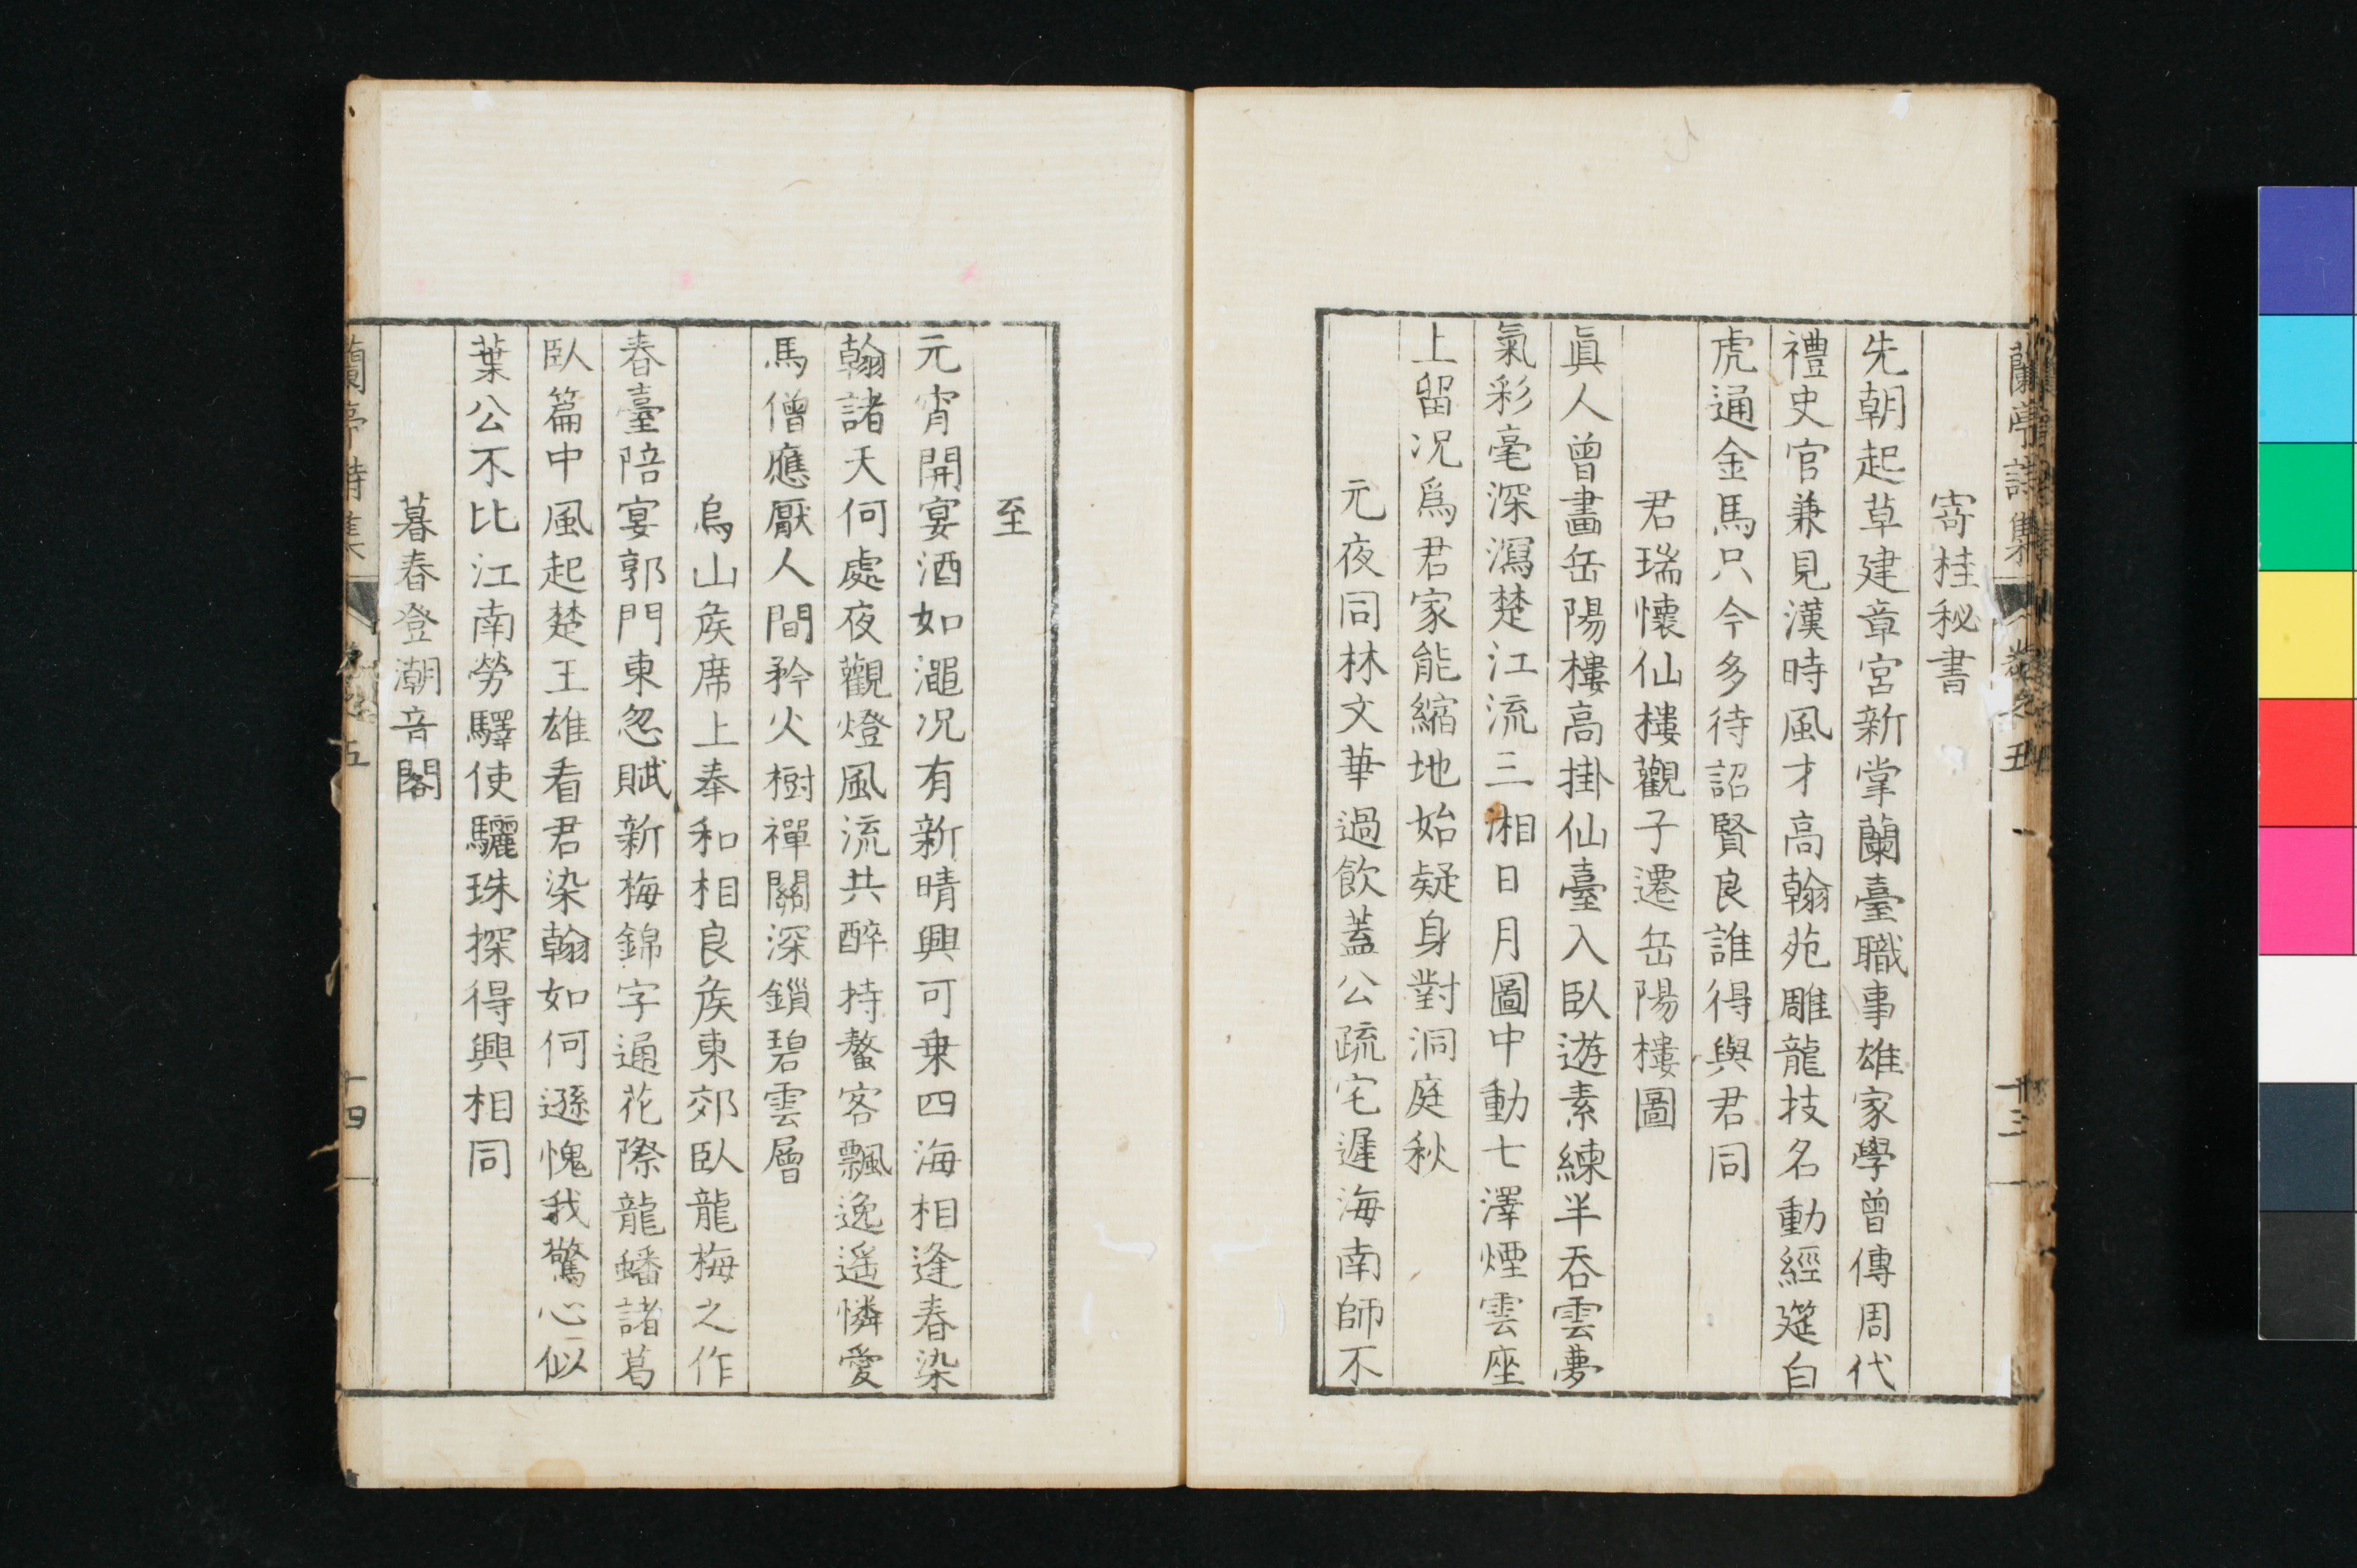 蘭亭詩集 卷之五 十三
寄桂秘書
先朝起草建章宮新掌蘭臺職事雄家學曾傳周代
禮史官兼見漢時風才高翰苑雕龍技名動經筵白
虎通金馬只今多待詔賢良誰得與君同
君瑞懷仙樓觀子遷岳陽樓圖
眞人曾畫岳陽樓高掛仙臺入臥遊素練半吞雲夢
氣彩毫深瀉楚江流三湘日月圖中動七澤煙雲座
上留况爲君家能縮地始疑身對洞庭秋
元夜同林文華過飲蓋公疏宅遲海南師不
至
元宵開宴酒如澠况有新晴興可乗四海相逢春染
翰諸天何處夜觀燈風流共醉持螯客飄逸遙憐愛
馬僧應厭人間矜火樹禪關深鎖碧雲層
烏山矦席上奉和相良矦東郊臥龍梅之作
春臺陪宴郭門東忽賦新梅錦字通花際龍蟠諸葛
臥篇中風起楚王雄看君染翰如何遜愧我驚心似
葉公不比江南勞驛使驪珠探得興相同
暮春登潮音閣
蘭亭詩集 卷之五 十四